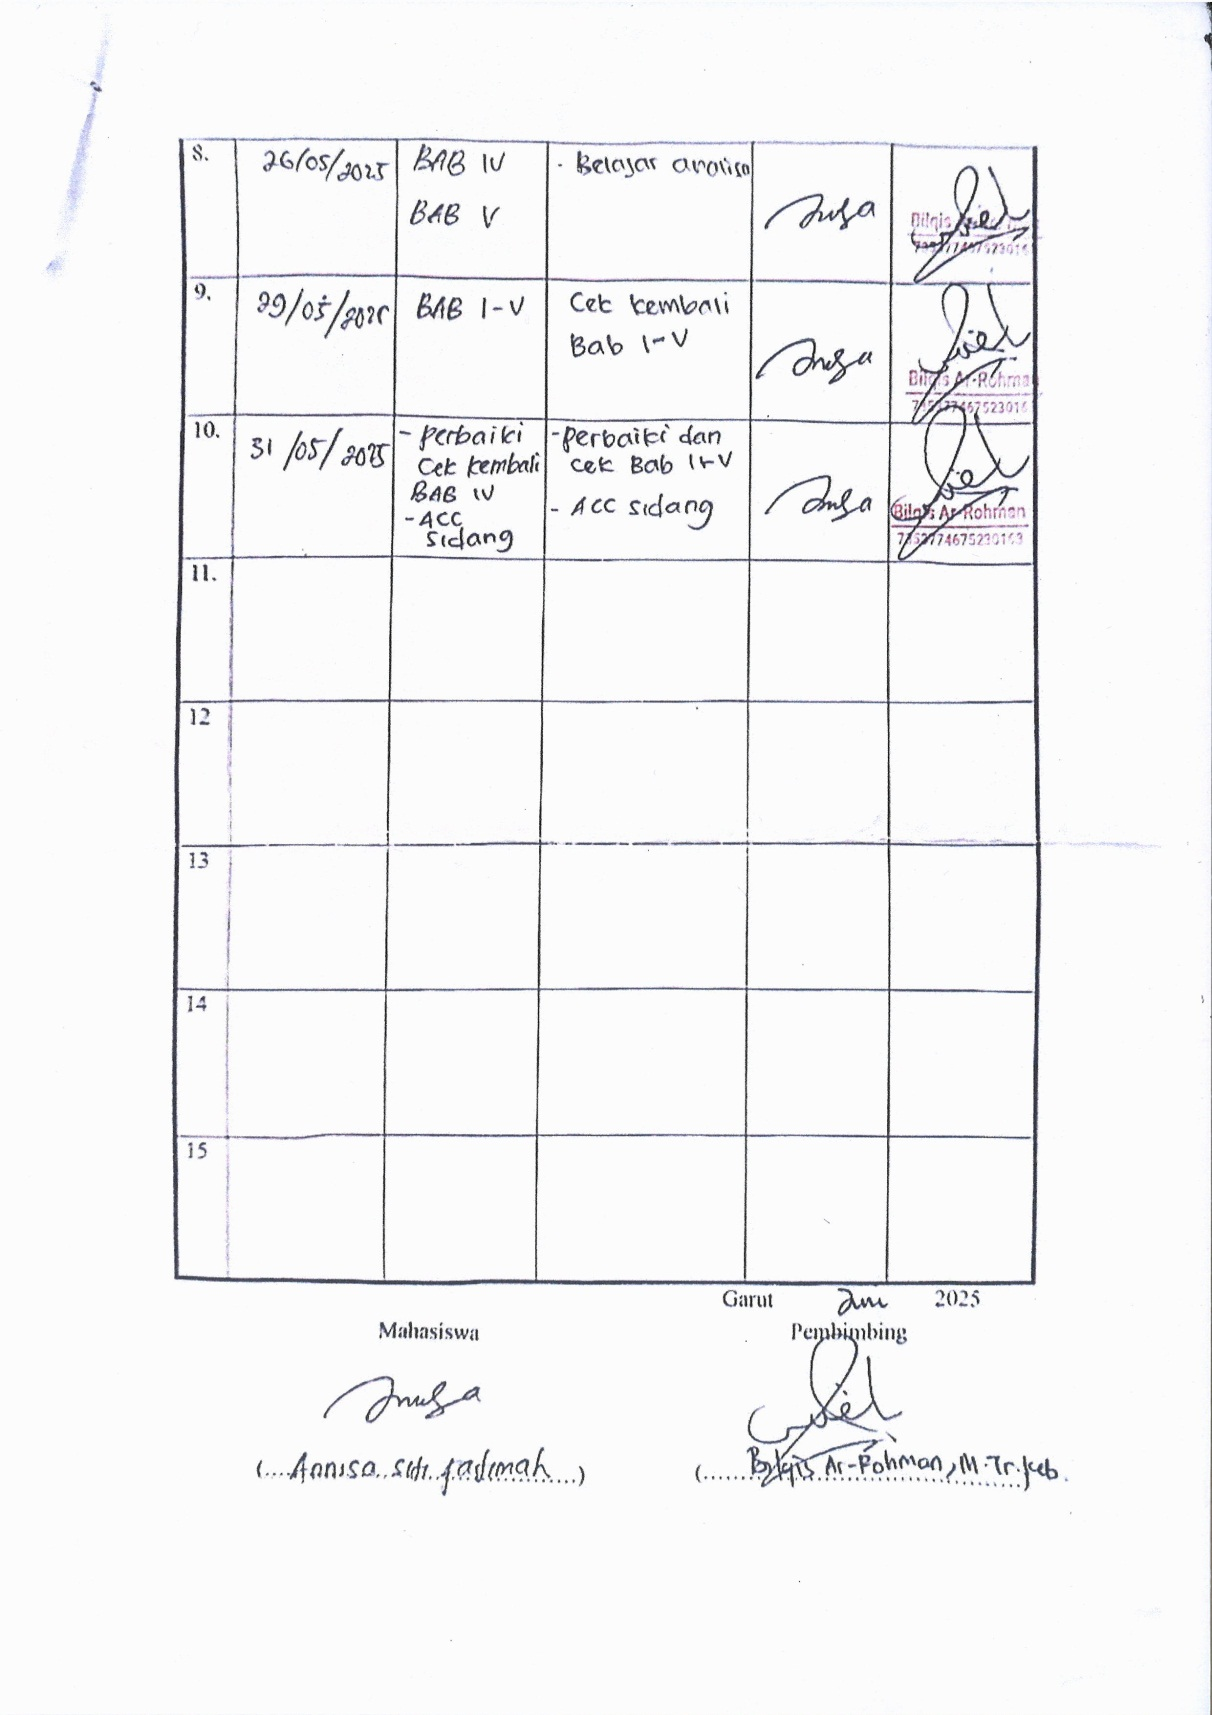 8.
26/05/2025
BAB IV
BAB V
- Belajar analisa
9.
29/05/2025
BAB I-V
Cek kembali
Bab I-V
Bilqis Ar-Rohma
10.
31/05/2025
- perbaiki
Cek kembali
BAB IV
- ACC
sidang
- perbaiki dan
cek Bab I-V
- ACC sidang
Bilqis Ar-Rohman
11.
12
13
14
15
Garut Juni 2025
Mahasiswa
Pembimbing
(....Annisa Siti fadimah....)
(....Bilqis Ar-Rohman, M.Tr.Keb.